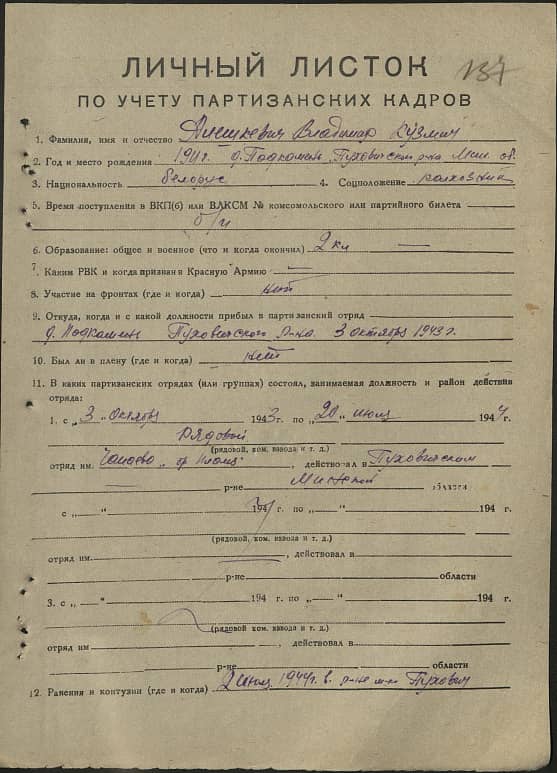 137
ЛИЧНЫЙ ЛИСТОК
ПО УЧЕТУ ПАРТИЗАНСКИХ КАДРОВ
1. Фамилия, имя и отчество Владимир Кузмич
2. Год и место рождения 1911г. д. Подкамень Пуховичского р-на Мин. об.
3. Национальность белорус 4. Соцположение колхозник
5. Время поступления в ВКП(б) или ВЛКСМ № комсомольского или партийного билета
б/п
6. Образование: общее и военное (что и когда окончил) 2 кл —
7. Каким РВК и когда призван в Красную Армию —
8. Участие на фронтах (где и когда) нет
9. Откуда, когда и с какой должности прибыл в партизанский отряд
д. Подкамень Пуховичского р-на. 3 октября 1943 г.
10. Был ли в плену (где и когда) нет
11. В каких партизанских отрядах (или группах) состоял, занимаемая должность и район действия
отряда:
1. с „3„ Октября 1943г. по „20„ июля 1944 г.
Рядовой
(рядовой, ком. взвода и т. д.)
отряд им. Чапаева „бр Пламя„ , действовал в Пуховичском
р-не Минской области
с „—„ 194 г. по „—„ 194 г.
(рядовой, ком. взвода и т. д.)
отряд им. , действовал в
р-не области
3. с „—„ 194 г. по „—„ 194 г.
(рядовой ком. взвода и т. д.)
отряд им , действовал в
р-не области
12. Ранения и контузии (где и когда) 2 июля 1944г. в р-не Пухович